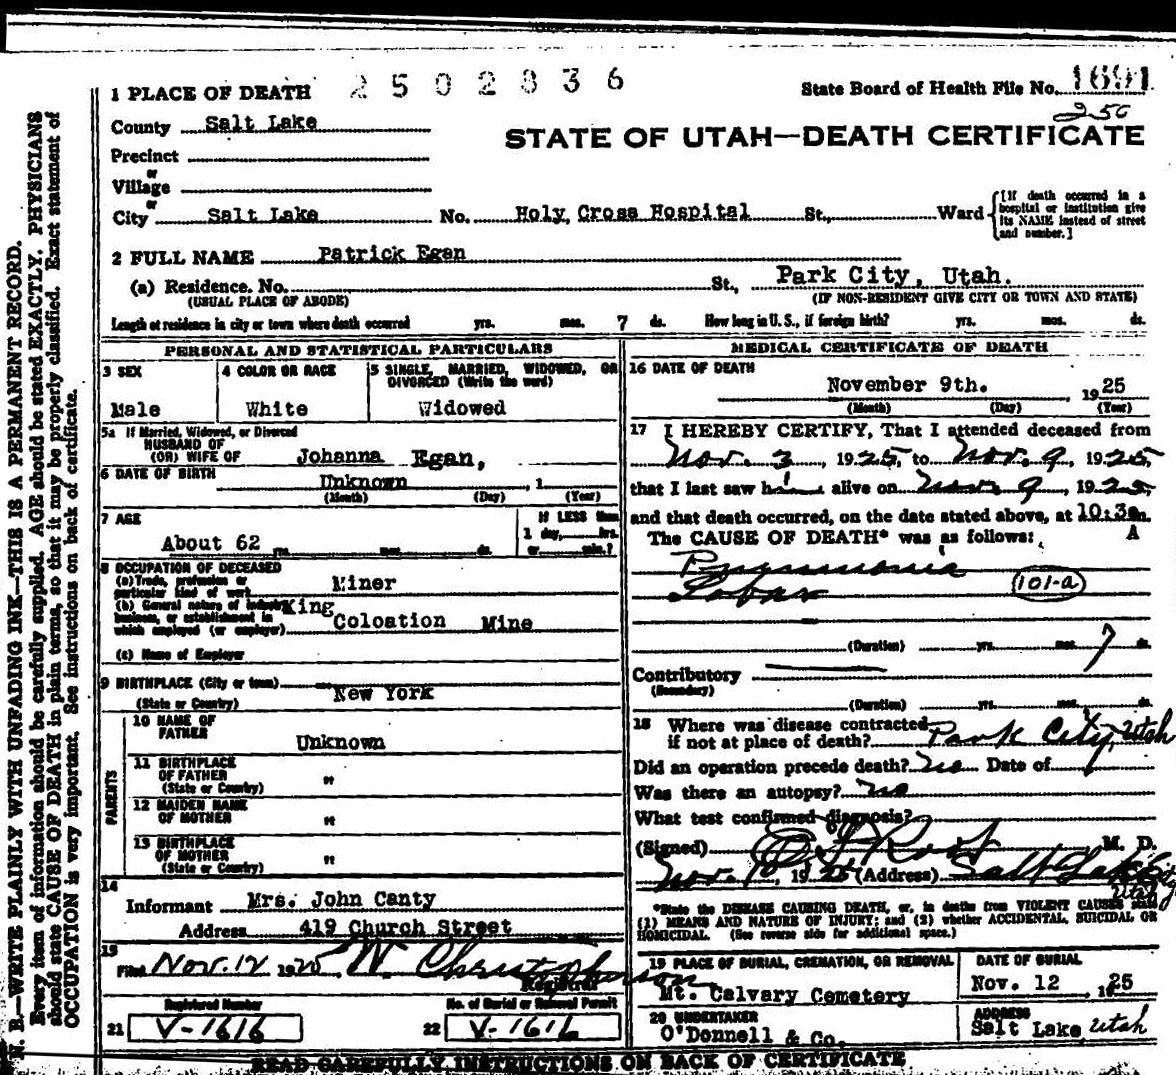 1 PLACE OF DEATH 2502836 State Board of Health File No. 1691
256
County Salt Lake
STATE OF UTAH—DEATH CERTIFICATE
Precinct
or
Village
or
City Salt Lake No. Holy Cross Hospital St., Ward [If death occurred in a hospital or institution give its NAME instead of street and number.]
2 FULL NAME Patrick Egan
(a) Residence. No. St., Park City, Utah.
(USUAL PLACE OF ABODE) (IF NON-RESIDENT GIVE CITY OR TOWN AND STATE)
Length of residence in city or town where death occurred yrs. mos. 7 ds. How long in U. S., if foreign birth? yrs. mos. ds.
PERSONAL AND STATISTICAL PARTICULARS
3 SEX
Male
4 COLOR OR RACE
White
5 SINGLE, MARRIED, WIDOWED, OR
DIVORCED (Write the word)
Widowed
5a If Married, Widowed, or Divorced
HUSBAND OF
(OR) WIFE OF Johanna Egan,
6 DATE OF BIRTH Unknown , 1
(Month) (Day) (Year)
7 AGE
About 62 yrs. mos. ds.
If LESS than
1 day, hrs.
or min.?
8 OCCUPATION OF DECEASED
(a) Trade, profession or
particular kind of work Miner
(b) General nature of industry King
business, or establishment in
which employed (or employer) Coloation Mine
(c) Name of Employer
9 BIRTHPLACE (City or town)
(State or Country) New York
PARENTS
10 NAME OF
FATHER Unknown
11 BIRTHPLACE
OF FATHER "
(State or Country)
12 MAIDEN NAME
OF MOTHER "
13 BIRTHPLACE
OF MOTHER "
(State or Country)
14
Informant Mrs. John Canty
Address 419 Church Street
15
Filed Nov. 12 1925 W. Christopherson
Registrar
Registered Number
21 V-1616
No. of Burial or Removal Permit
22 V-1616
MEDICAL CERTIFICATE OF DEATH
16 DATE OF DEATH
November 9th. 1925
(Month) (Day) (Year)
17 I HEREBY CERTIFY, That I attended deceased from
Nov. 3, 1925, to Nov. 9, 1925,
that I last saw him alive on Nov. 9, 1925,
and that death occurred, on the date stated above, at 10:30 m.
A
The CAUSE OF DEATH* was as follows:
Pnyumonia
Lobar 101-a
(Duration) yrs. mos. 7 ds.
Contributory
(Secondary)
(Duration) yrs. mos. ds.
18 Where was disease contracted
if not at place of death? Park City, Utah
Did an operation precede death? no Date of
Was there an autopsy? no
What test confirmed diagnosis?
(Signed) Root M. D.
Nov. 10, 1925 (Address) Salt Lake City
Utah
*State the DISEASE CAUSING DEATH, or, in deaths from VIOLENT CAUSES state
(1) MEANS AND NATURE OF INJURY; and (2) whether ACCIDENTAL, SUICIDAL OR
HOMICIDAL. (See reverse side for additional space.)
19 PLACE OF BURIAL, CREMATION, OR REMOVAL
Mt. Calvary Cemetery
DATE OF BURIAL
Nov. 12, 1925
20 UNDERTAKER
O'Donnell & Co.
ADDRESS
Salt Lake Utah
READ CAREFULLY INSTRUCTIONS ON BACK OF CERTIFICATE
N. B.—WRITE PLAINLY WITH UNFADING INK—THIS IS A PERMANENT RECORD.
Every item of information should be carefully supplied. AGE should be stated EXACTLY. PHYSICIANS
should state CAUSE OF DEATH in plain terms, so that it may be properly classified. Exact statement of
OCCUPATION is very important. See instructions on back of certificate.